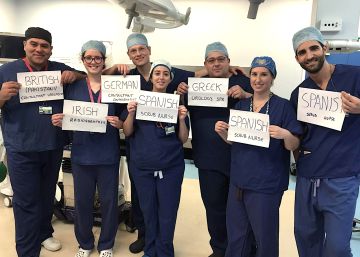 BRITISH
PAKISTANI
CONSULTANT UROLOGIST
IRISH
RADIOGRAPHER
GERMAN
CONSULTANT
SPANISH
SCRUB NURSE
GREEK
UROLOGY SPR
SPANISH
SCRUB NURSE
SPANISH